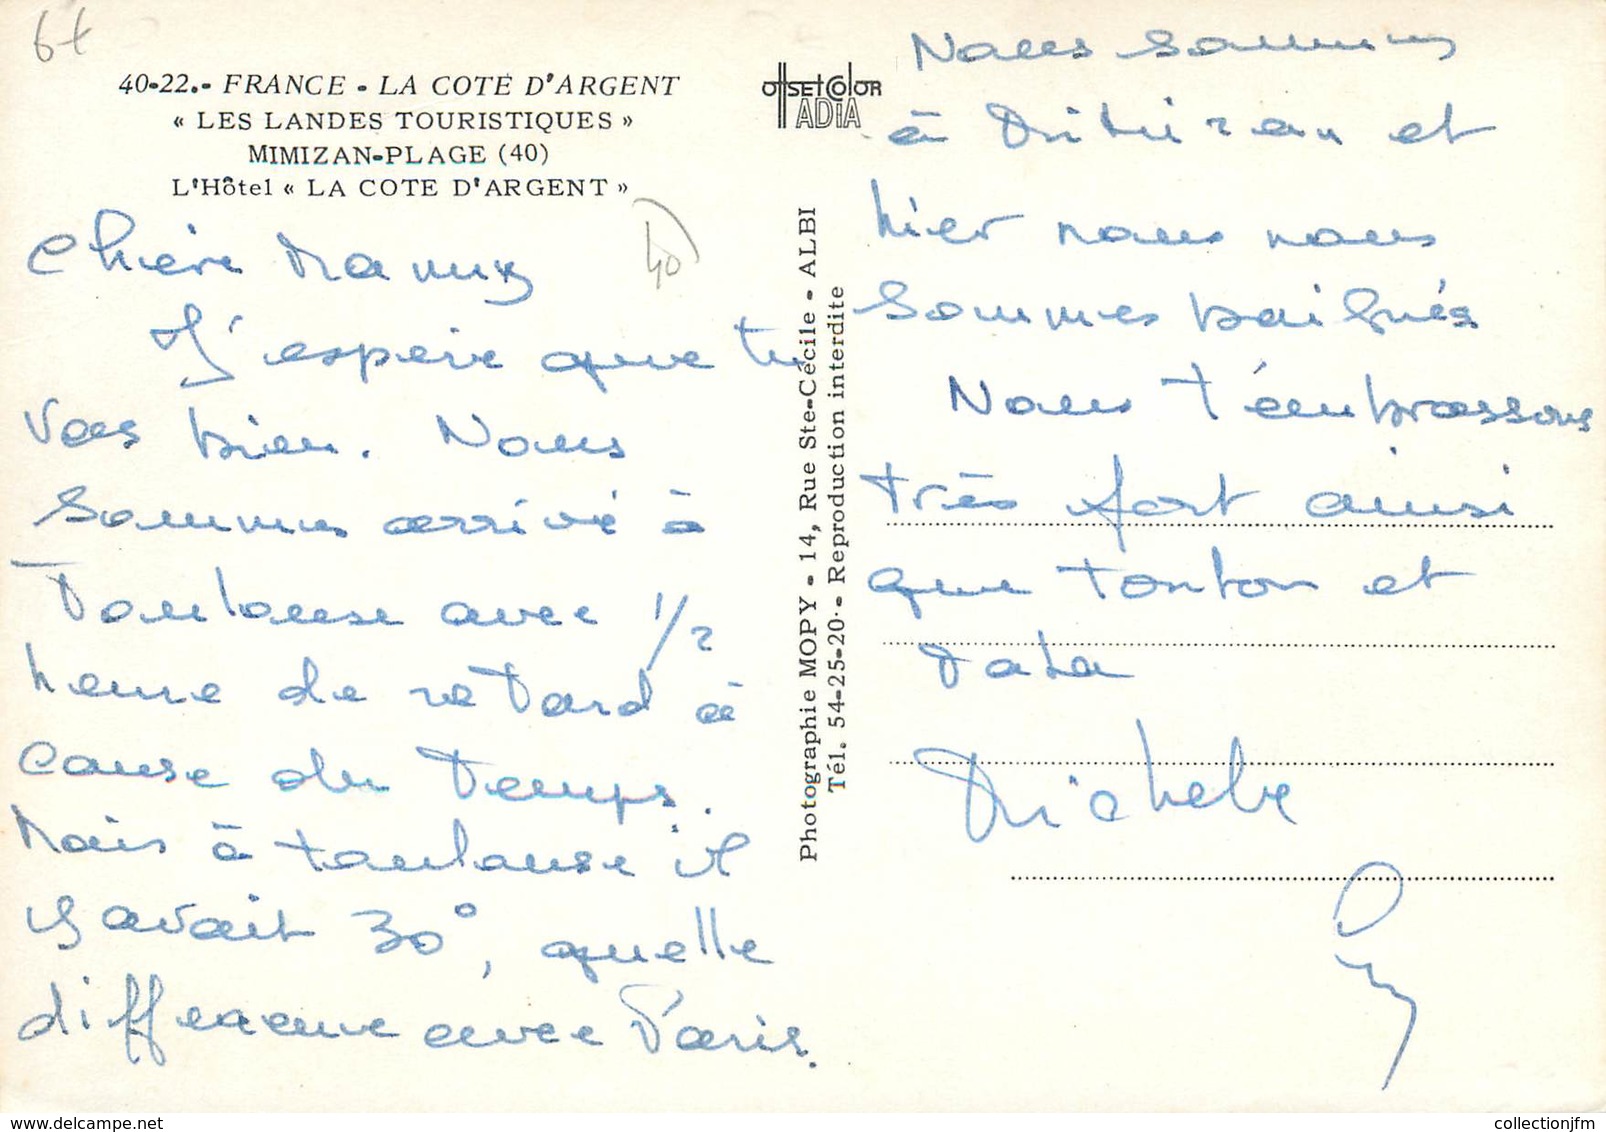 64
40-22.- FRANCE - LA COTE D'ARGENT
« LES LANDES TOURISTIQUES »
MIMIZAN-PLAGE (40)
L'Hôtel « LA COTE D'ARGENT »
40
Chère Mamy
J'espère que tu
vas bien. Nous
sommes arrivé à
Toulouse avec 1/2
heure de retard à
cause du temps.
Mais à toulouse il
y avait 30°, quelle
différence avec Paris.
OFFSET COLOR
ADIA
Photographie MOPY - 14, Rue Ste-Cécile - ALBI
Tél. 54-25-20 - Reproduction interdite
Nous sommes
à Mimizan et
hier nous nous
sommes baignés
Nous t'embrassons
très fort ainsi
que tonton et
tata
Michele
collectionjfm